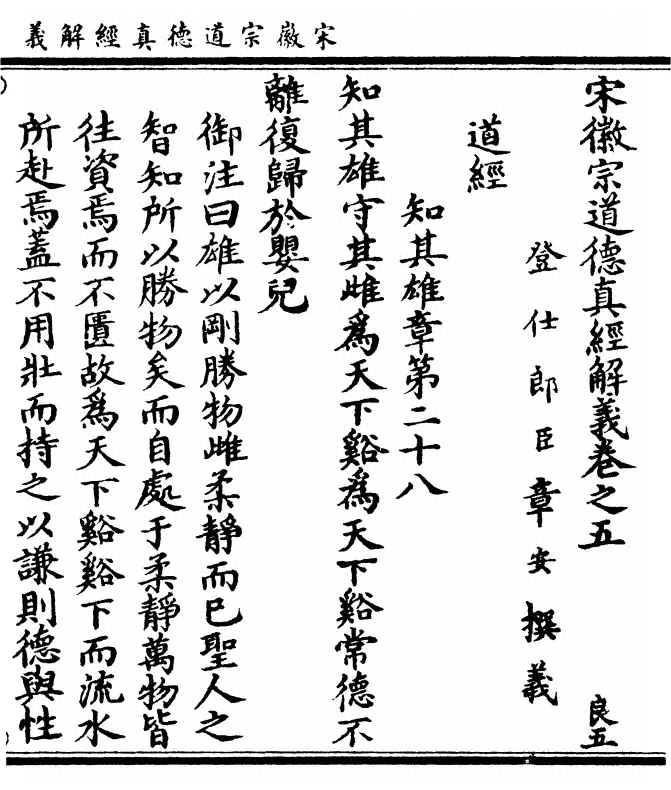 宋徽宗道德真經解義
宋徽宗道德真經解義卷之五 良五
登仕郎臣章安撰義
道經
知其雄章第二十八
知其雄守其雌爲天下谿爲天下谿常德不
離復歸於嬰兒
御注曰雄以剛勝物雌柔靜而已聖人之
智知所以勝物矣而自處于柔靜萬物皆
往資焉而不匱故爲天下谿谿下而流水
所赴焉蓋不用壯而持之以謙則德與性